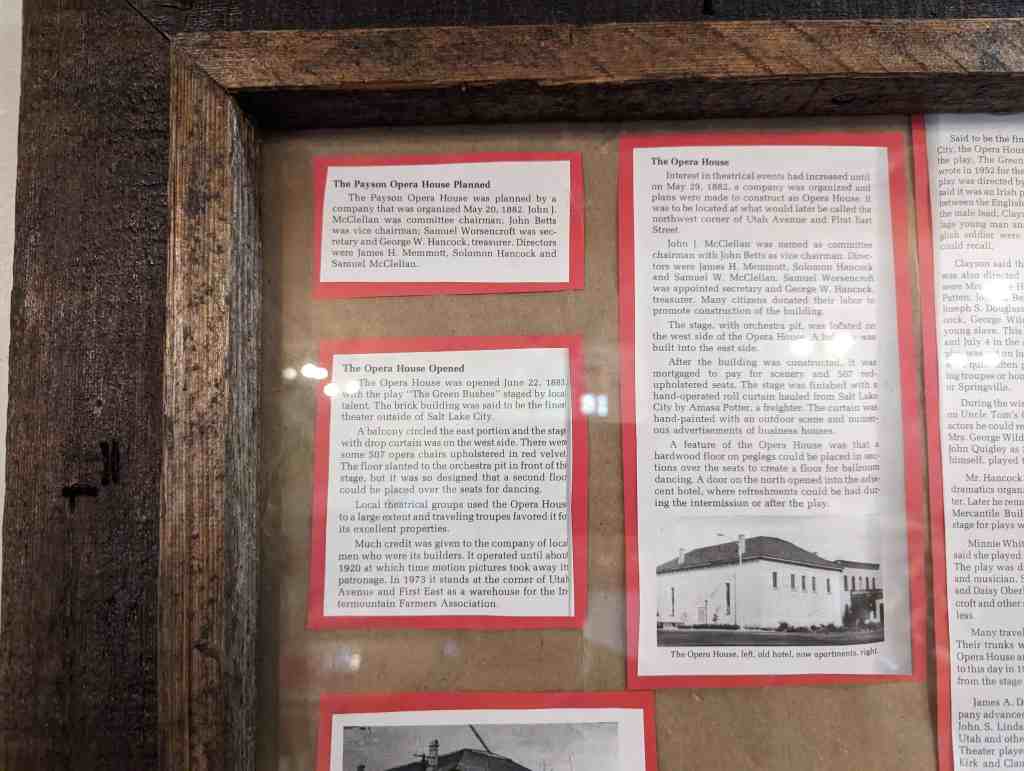 The Payson Opera House Planned
The Payson Opera House was planned by a
company that was organized May 20, 1882. John J.
McClellan was committee chairman; John Betts
was vice chairman; Samuel Worsencroft was sec-
retary and George W. Hancock, treasurer. Directors
were James H. Memmott, Solomon Hancock and
Samuel McClellan.
The Opera House Opened
The Opera House was opened June 22, 1883,
with the play "The Green Bushes" staged by loca
talent. The brick building was said to be the fines
theater outside of Salt Lake City.
A balcony circled the east portion and the stag
with drop curtain was on the west side. There were
some 507 opera chairs upholstered in red velvet
The floor slanted to the orchestra pit in front of th
stage, but it was so designed that a second floo
could be placed over the seats for dancing.
Local theatrical groups used the Opera Hous
to a large extent and traveling troupes favored it fo
its excellent properties.
Much credit was given to the company of loca
men who were its builders. It operated until about
1920 at which time motion pictures took away it
patronage. In 1973 it stands at the corner of Utah
Avenue and First East as a warehouse for the In-
termountain Farmers Association.
The Opera House
Interest in theatrical events had increased until
on May 29, 1882, a company was organized and
plans were made to construct an Opera House. It
was to be located at what would later be called the
northwest corner of Utah Avenue and First East
Street.
John J. McClellan was named as committee
chairman with John Betts as vice chairman. Direc-
tors were James H. Memmott, Solomon Hancock
and Samuel W. McClellan. Samuel Worsencroft
was appointed secretary and George W. Hancock,
treasurer. Many citizens donated their labor to
promote construction of the building.
The stage, with orchestra pit, was located on
the west side of the Opera House. A was
built into the east side.
After the building was constructed, it was
mortgaged to pay for scenery and 507 red-
upholstered seats. The stage was finished with a
hand-operated roll curtain hauled from Salt Lake
City by Amasa Potter, a freighter. The curtain was
hand-painted with an outdoor scene and numer-
ous advertisements of business houses.
A feature of the Opera House was that a
hardwood floor on peglegs could be placed in sec-
tions over the seats to create a floor for ballroom
dancing. A door on the north opened into the adja-
cent hotel, where refreshments could be had dur-
ing the intermission or after the play.
The Opera House, left, old hotel, now apartments, right.
Said to be the fin
City, the Opera Hous
the play, The Green
wrote in 1952 for the
play was directed by
said it was an Irish p
between the English
the male lead, Clays
age young man an
glish soldier were
could recall.
Clayson said th
was also directed
were Mrs. H
Patten, Be
Joseph S. Douglass
cock, George Wils
young slave. This
and July 4 in the
play was on Ju
ing troupes or hom
or Springville.
During the win
on Uncle Tom's
actors he could re
Mrs. George Wild
John Quigley as
himself, played t
Mr. Hancock
dramatics organi
ter. Later he remo
Mercantile Buil
stage for plays w
Minnie Whit
said she played
The play was d
and musician. S
and Daisy Oberh
croft and other
less.
Many travel
Their trunks w
Opera House a
to this day in 1
from the stage
James A. D
pany advance
John, S. Linds
Utah and othe
Theater playe
Kirk and Cla